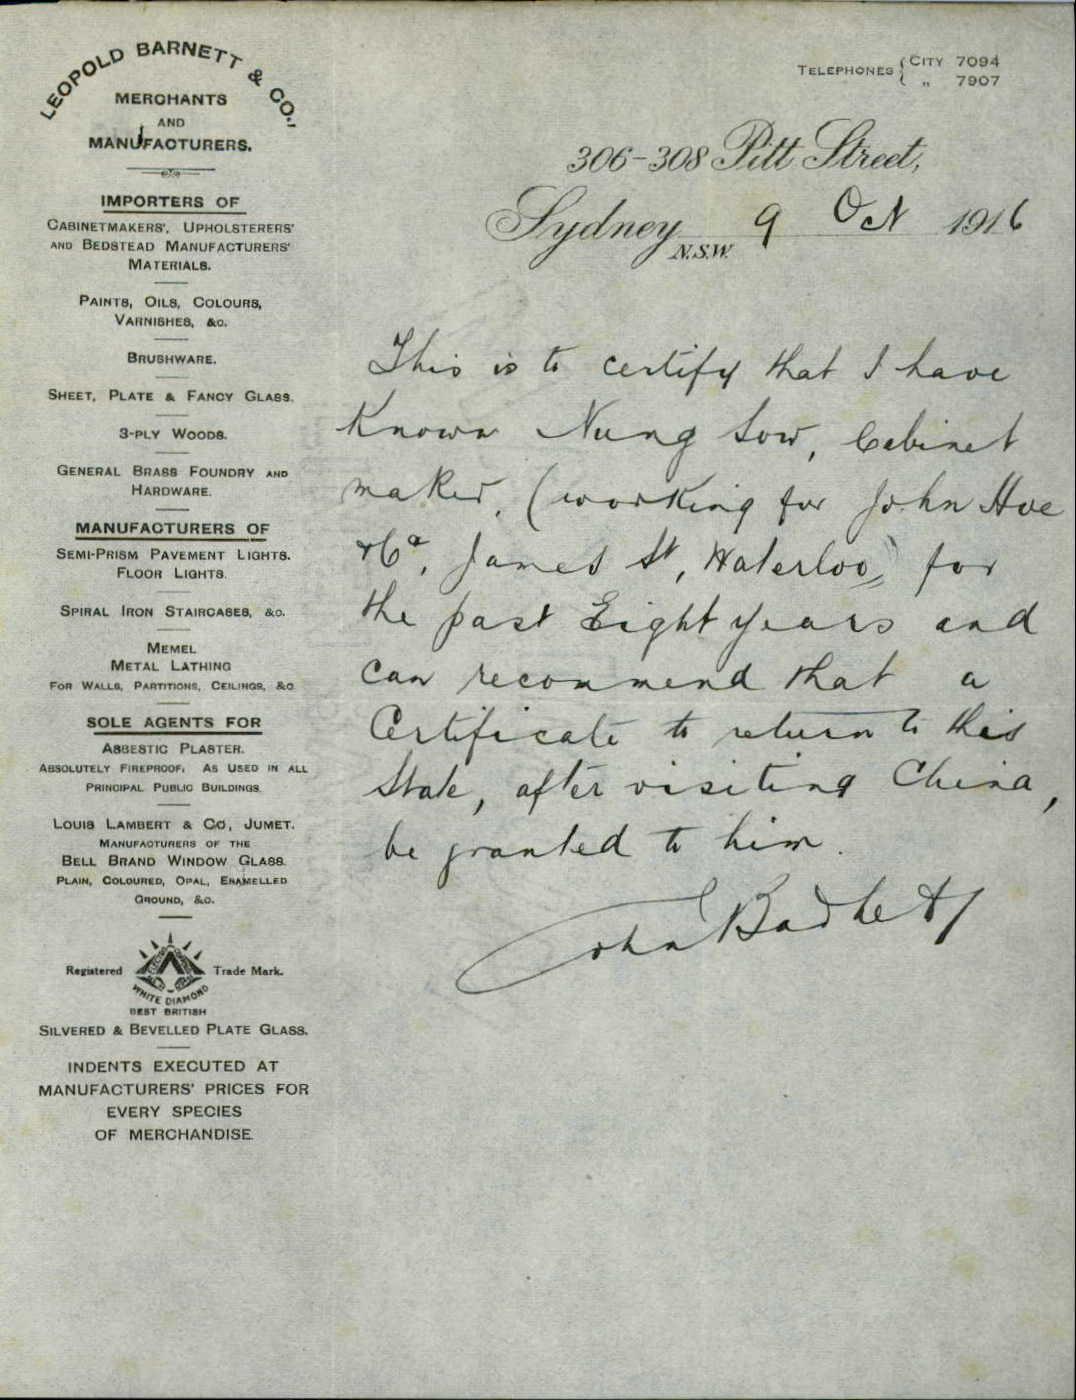 LEOPOLD BARNETT & CO.,
MERCHANTS
AND
MANUFACTURERS.
IMPORTERS OF
CABINETMAKERS', UPHOLSTERERS'
AND BEDSTEAD MANUFACTURERS'
MATERIALS.
PAINTS, OILS, COLOURS,
VARNISHES, &C.
BRUSHWARE.
SHEET, PLATE & FANCY GLASS.
3-PLY WOODS.
GENERAL BRASS FOUNDRY AND
HARDWARE.
MANUFACTURERS OF
SEMI-PRISM PAVEMENT LIGHTS.
FLOOR LIGHTS.
SPIRAL IRON STAIRCASES, &C.
MEMEL
METAL LATHING
FOR WALLS, PARTITIONS, CEILINGS, &C
SOLE AGENTS FOR
ASBESTIC PLASTER.
ABSOLUTELY FIREPROOF. AS USED IN ALL
PRINCIPAL PUBLIC BUILDINGS
LOUIS LAMBERT & CO, JUMET.
MANUFACTURERS OF THE
BELL BRAND WINDOW GLASS.
PLAIN, COLOURED, OPAL, ENAMELLED
GROUND, &C.
Registered Trade Mark.
WHITE DIAMOND
BEST BRITISH
SILVERED & BEVELLED PLATE GLASS.
INDENTS EXECUTED AT
MANUFACTURERS' PRICES FOR
EVERY SPECIES
OF MERCHANDISE
TELEPHONES { CITY 7094
„ 7907
306-308 Pitt Street,
Sydney 9 Oct 1916
N.S.W.
This is to certify that I have
Known Nung Sow, Cabinet
maker, (working for John Hoe
& Co, James St, Waterloo) for
the past Eight years and
can recommend that a
Certificate to return to this
State, after visiting China,
be granted to him.
John